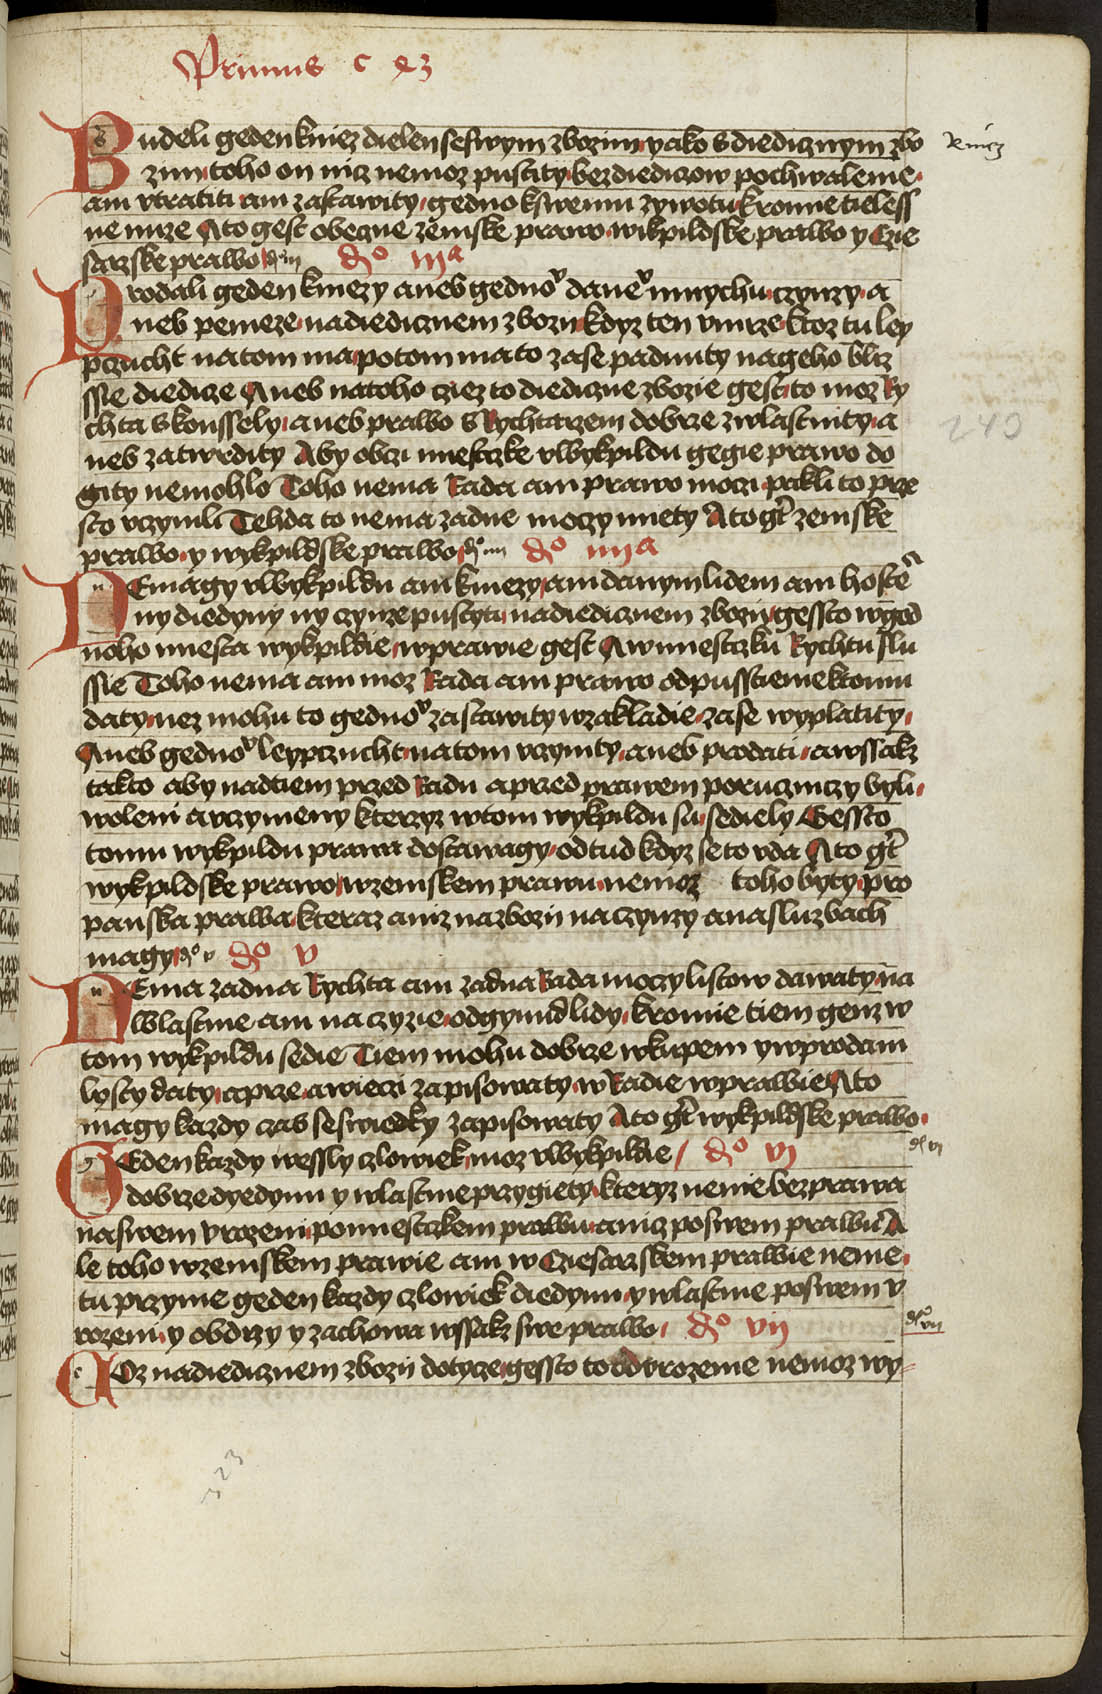 Primus c ꝛ3
Budeli geden kniez dielen seswym zbozim yako s diedicznym zbo
zim toho on nicz nemoz pustity bez diediczow pochwalenie
ani vtratiti ani zastawity gedno k swemu zywotu kromie tieless
ne nuze A to gest obeczne zemske prawo wikpildske prawo y Czie
sarzske prawo do iii do iiia
Prodali geden kniezy aneb gednoᵛ daneᵛ mnychu czynzy a
neb penieze na diedicznem zbozij kdyz ten vmrze ktoz tu ley
pczucht na tom ma potom ma to zase padnuty na geho bliz
ssie diedicze Aneb na toho cziez to diediczne zbozie gest to moz Ry
chta s konssely aneb prawo s Rychtarzem dobrze zwlastnity a
neb zatwrdity Aby obczi miestczke vwykpildu gegie prawo do
gity nemohlo Toho nema Rada ani prawo moczi pakli to prze
sto vczynili Tehda to nema zadne moczy miety A to gt zemske
prawo y wykpildske prawo do iiii do iiiia
NEmagy vwykpildu ani kniezy ani danym lidem ani hoste
ny diedyny ny czynze pustyti na diedicznem zbozij gessto wged
noho miesta wykpildie wprawie gest A w miestczku Rychtu slu
ssie Toho nema ani moz Rada ani prawo odpusstienie k tomu
daty nez mohu to gednoᵛ zastawity wzakladie zase wyplatity
Aneb gednoᵛ leypczucht na tom vczynity aneb prodati a wssakz
takto aby nad tiem przed Radu a przed prawem porucznyczy byli
woleni a vczynieny kterzyz wtom wykpildu su sediely Gessto
tomu wykpildu prawa dostawagy od tud kdyz se to vda A to gt
wykpildske prawo wzemskem prawu nemoz toho byty pro
panska prawa kteraz aniz na zbozij na czynzy a na sluzbach
magy do v do v
NEma zadna Rychta ani zadna Rada moczy listow dawaty na
wlastnie ani na czyzie od gynud lidy kromie tiem genz w
tom wykpildu sedie Tiem mohu dobrze wkupem y wprodani
lysty daty a prze a wieczi zapisowaty w Radie wprawie A to
magy kazdy czas se swiedky zapisowaty A to gt wykpildske prawo
GEden kazdy wessly czlowiek moz vwykpildie do vi do vi
dobrze dyedynu y wlastnie przygiety kteryz nenie bez prawa
na swem vrozeni po miestczkem prawu aniz po swem prawu A
le toho wzemskem prawie ani w Cziesarzskem prawie nenie
tu przyme geden kazdy czlowiek diedynu y wlastnie po swem v
rozeni y obdrzy y zachowa wssakz swe prawo do vii do vii
COz na diedicznem zbozij dotycze gessto to od vrozenie nemoz wy-
240
323